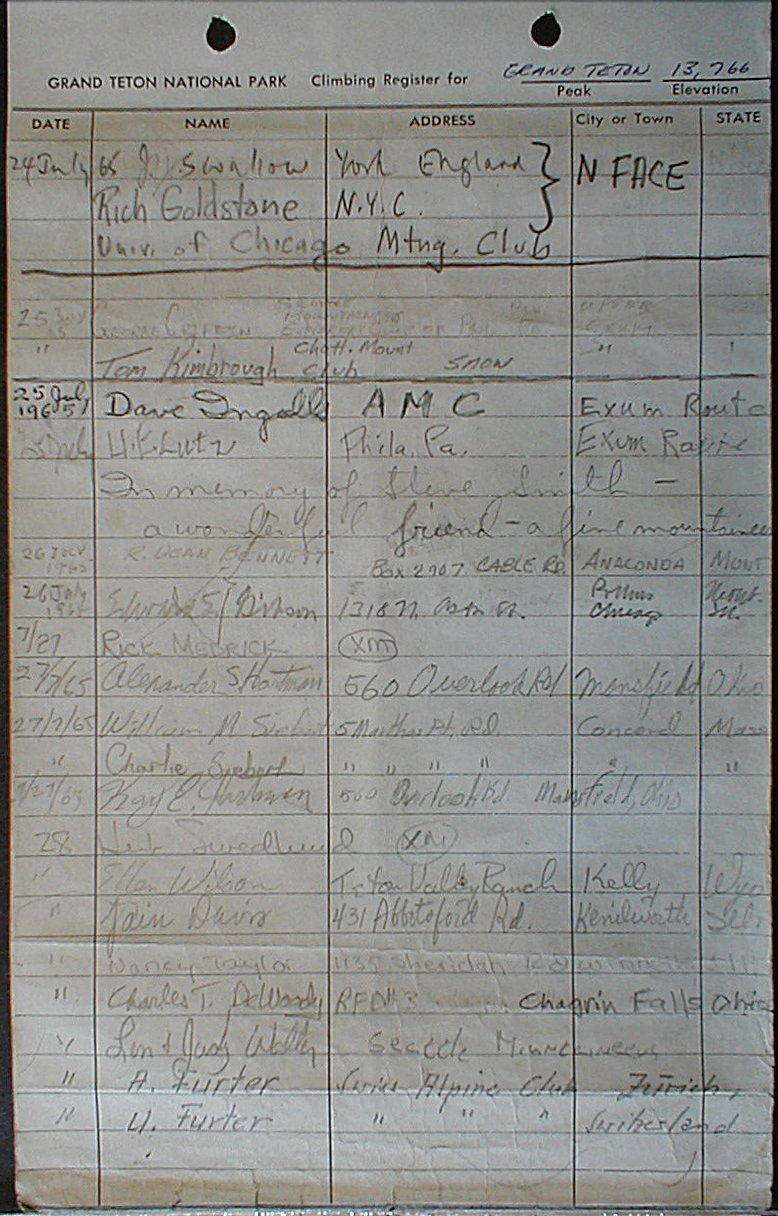 GRAND TETON NATIONAL PARK Climbing Register for GRAND TETON 13,766
Peak Elevation
DATE NAME ADDRESS City or Town STATE
24 July 65 J. Swallow York England } N FACE
Rich Goldstone N.Y.C.
Univ. of Chicago Mtng. Club
25 July UPPER
65 EXUM
" Tom Kimbrough Chatt. Mount Club SNOW "
25 July 1965 Dave Ingalls A M C Exum Route
H.K. Lutz Phila. Pa. Exum Route
In memory of Steve Smith -
a wonderful friend - a fine mountaineer
26 JULY 1965 R. DEAN BENNETT BOX 2907 CABLE RD. ANACONDA MONT
26 July Chicago Ill.
7/27 RICK MEDRICK XM
27/7/65 Alexander S Hartman 560 Overlook Rd Mansfield Ohio
27/7/65 William M Siebert 5 Rd. Concord Mass
" Charlie Siebert " " " " " "
7/27/65 Kay E. Hartman 560 Overlook Rd Mansfield, Ohio
28 XM
" Ellen Wilson Teton Valley Ranch Kelly Wyo
" 431 Abbotsford Rd. Kenilworth Ill.
" Nancy Taylor 1137 Sheridan Rd
" Charles T. DeWoody RFD#3 Chagrin Falls Ohio
" Len & Judy Seattle Mountaineers
" A. Furter Swiss Alpine Club Zürich,
" U. Furter " " " Switzerland